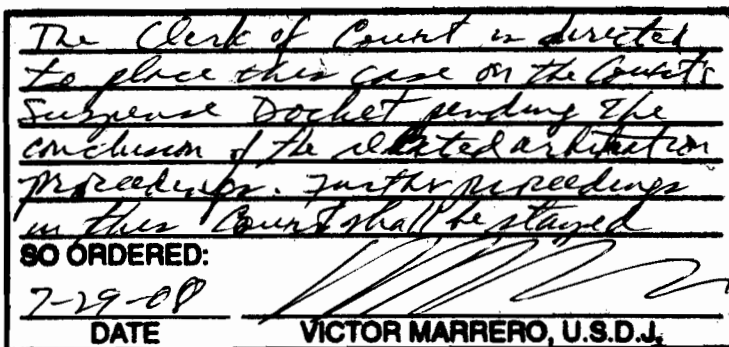 The Clerk of Court is directed
to place this case on the Court's
Suspense Docket pending the
conclusion of the related arbitration
proceedings. Further proceedings
in this Court shall be stayed
SO ORDERED:
7-29-08
DATE VICTOR MARRERO, U.S.D.J.